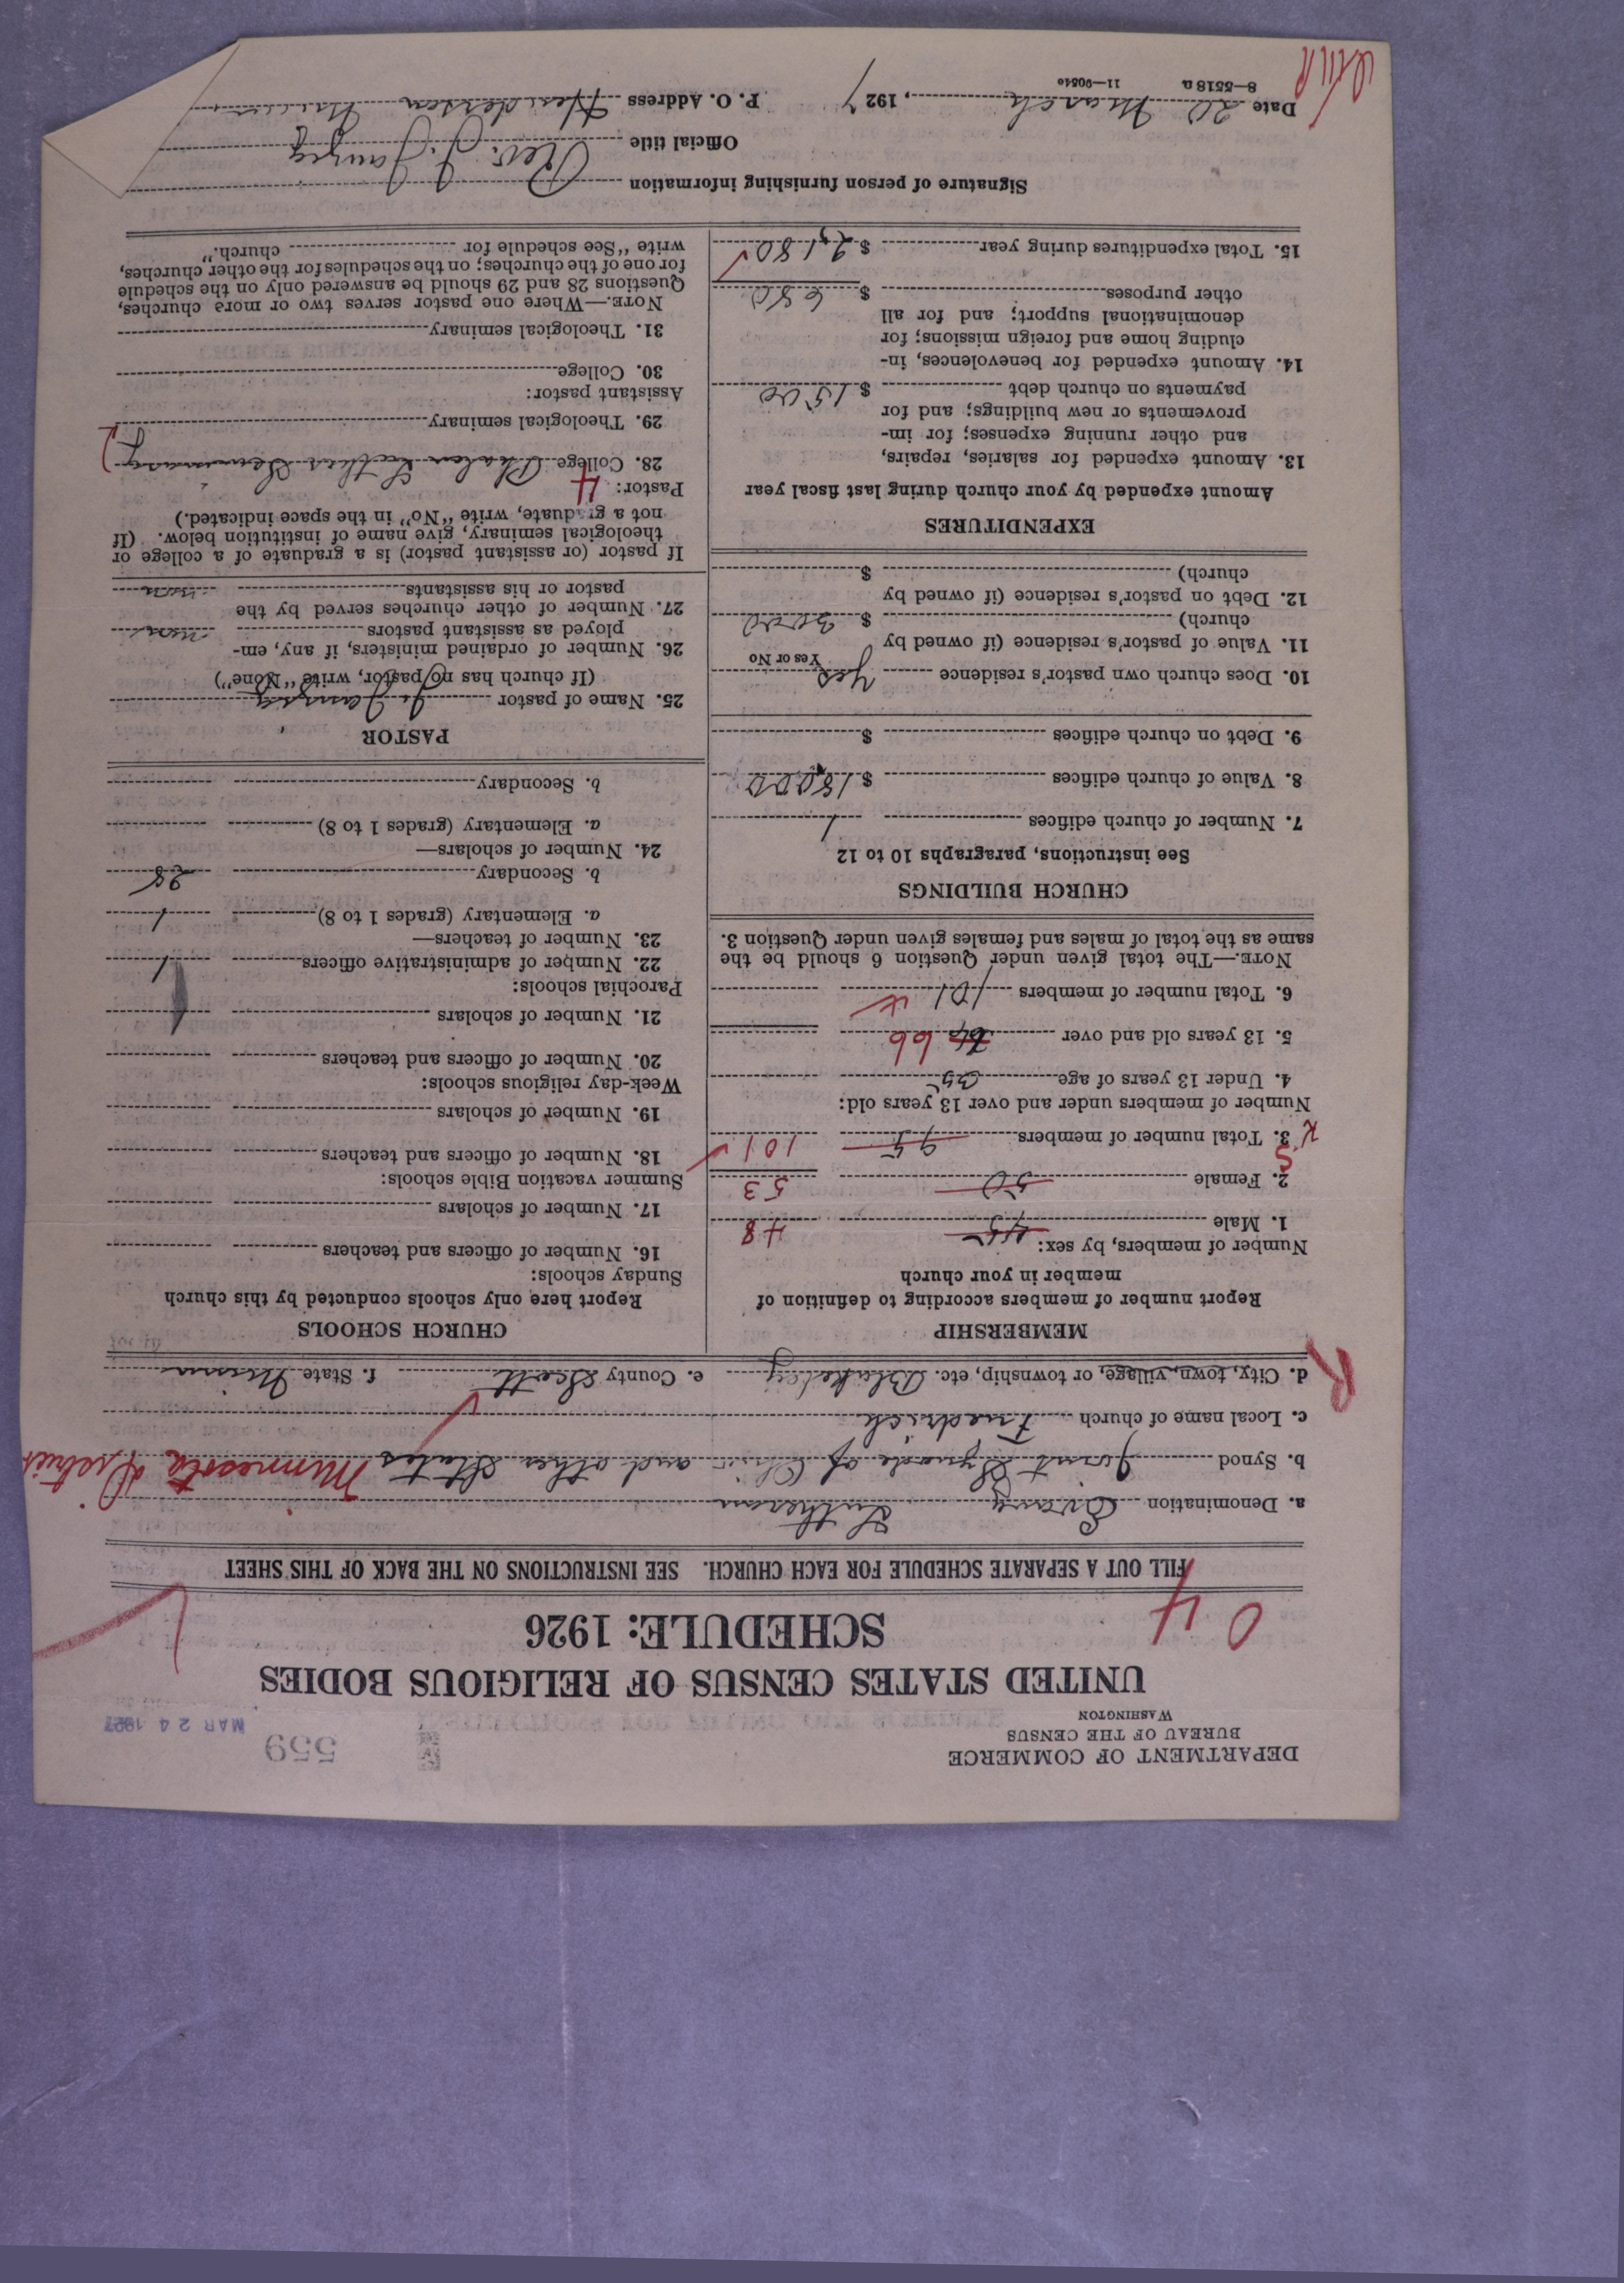 DEPARTMENT OF COMMERCE
BUREAU OF THE CENSUS
WASHINGTON
559
MAR 24 1927
UNITED STATES CENSUS OF RELIGIOUS BODIES
SCHEDULE: 1926
04
FILL OUT A SEPARATE SCHEDULE FOR EACH CHURCH. SEE INSTRUCTIONS ON THE BACK OF THIS SHEET
a. Denomination Evang Lutheran
b. Synod Joint Synode of Ohio and other States Minnesota District
c. Local name of church
d. City, town, village, or township, etc. Blakeley e. County Scott f. State Minn
R
MEMBERSHIP
Report number of members according to definition of
member in your church
Number of members, by sex:
1. Male 45 48
2. Female 50 53
3. Total number of members 95 101
Number of members under and over 13 years old:
4. Under 13 years of age 35
5. 13 years old and over 66
6. Total number of members 101
NOTE.—The total given under Question 6 should be the
same as the total of males and females given under Question 3.
CHURCH BUILDINGS
See instructions, paragraphs 10 to 12
7. Number of church edifices 1
8. Value of church edifices $ 18,000
9. Debt on church edifices $
10. Does church own pastor's residence Yes
Yes or No
11. Value of pastor's residence (if owned by
church) $ 3000
12. Debt on pastor's residence (if owned by
church) $
EXPENDITURES
Amount expended by your church during last fiscal year
13. Amount expended for salaries, repairs,
and other running expenses; for im-
provements or new buildings; and for
payments on church debt $ 1500
14. Amount expended for benevolences, in-
cluding home and foreign missions; for
denominational support; and for all
other purposes $ 680
15. Total expenditures during year $ 2,180
CHURCH SCHOOLS
Report here only schools conducted by this church
Sunday schools:
16. Number of officers and teachers
17. Number of scholars
Summer vacation Bible schools:
18. Number of officers and teachers
19. Number of scholars
Week-day religious schools:
20. Number of officers and teachers
21. Number of scholars
Parochial schools:
22. Number of administrative officers 1
23. Number of teachers—
a. Elementary (grades 1 to 8) 1
b. Secondary 28
24. Number of scholars—
a. Elementary (grades 1 to 8)
b. Secondary
PASTOR
25. Name of pastor
(If church has no pastor, write "None")
26. Number of ordained ministers, if any, em-
ployed as assistant pastors none
27. Number of other churches served by the
pastor or his assistants none
If pastor (or assistant pastor) is a graduate of a college or
theological seminary, give name of institution below. (If
not a graduate, write "No" in the space indicated.)
Pastor: 4
28. College Phalen Luther Seminary
29. Theological seminary
Assistant pastor:
30. College
31. Theological seminary
NOTE.—Where one pastor serves two or more churches,
Questions 28 and 29 should be answered only on the schedule
for one of the churches; on the schedules for the other churches,
write "See schedule for church."
Signature of person furnishing information
Official title Rev.
Date 20 March, 1927 P. O. Address Henderson Minn
8—5518 a 11—9054c